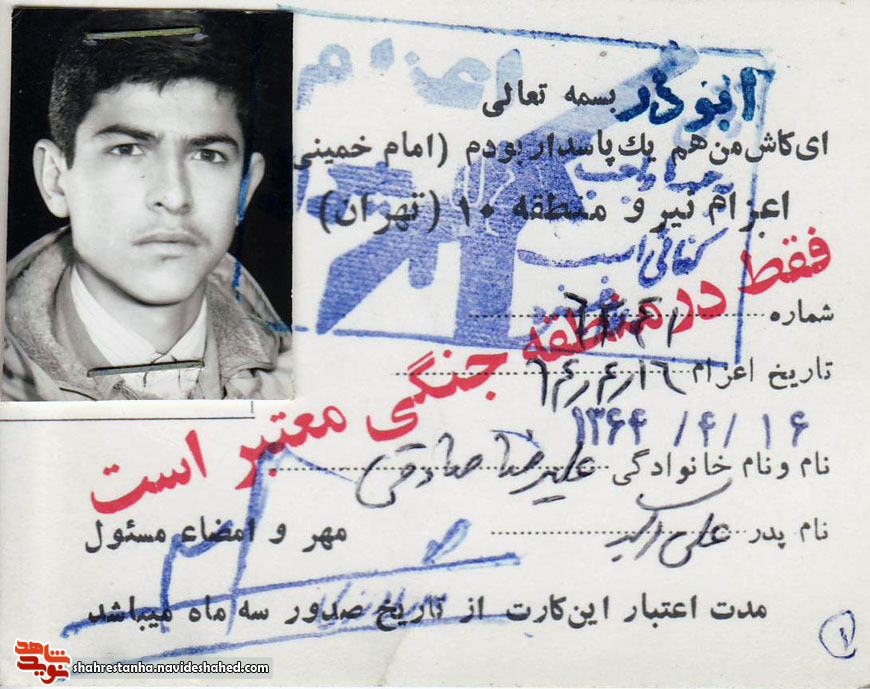 اعزام
ابوذر
بسمه تعالی
ای‌کاش من هم یك پاسدار بودم (امام خمینی
اعزام نیرو منطقه ۱۰ (تهران)
کفائی است
فقط در منطقه جنگی معتبر است
شماره
تاریخ اعزام ۶۴٫۴٫۱۶
۱۳۶۴/۴/۱۶
نام و نام خانوادگی علیرضا صادقی
نام پدر علی اکبر
مهر و امضاء مسئول
مدت اعتبار این‌کارت از تاریخ صدور سه ماه میباشد
۱
نوید شاهد
shahrestanha.navideshahed.com